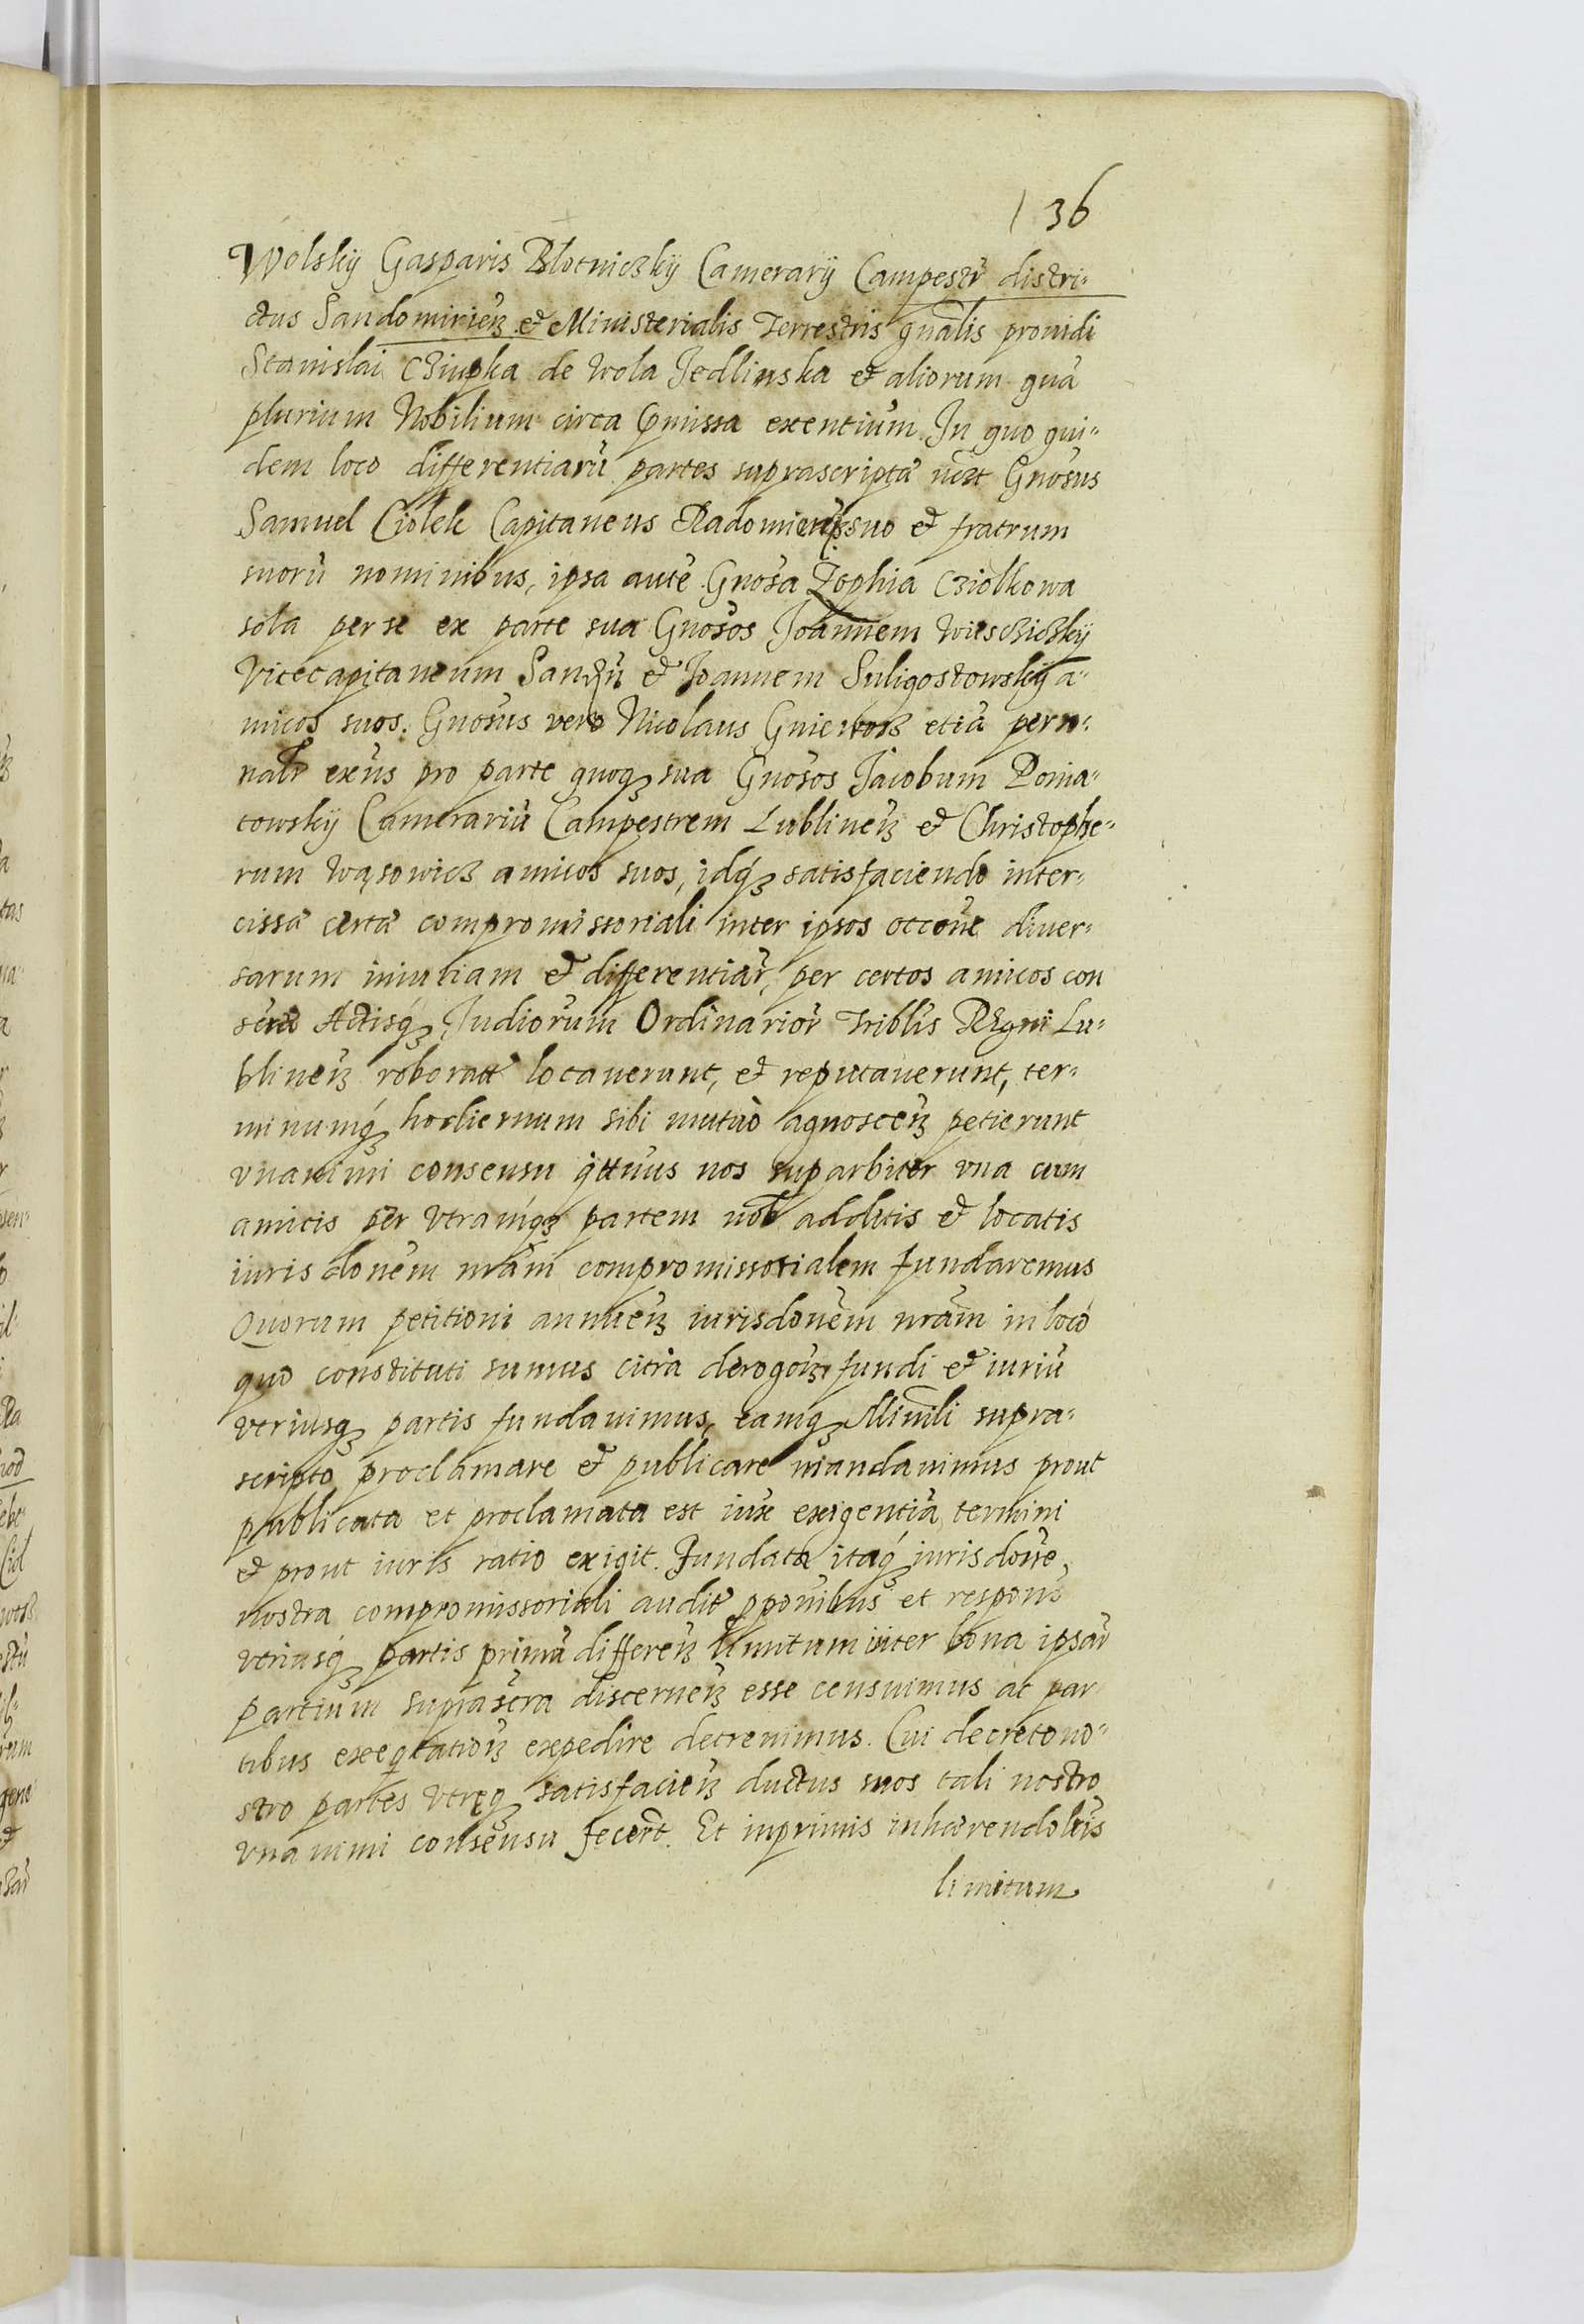 136
Wolskij Gasparis Blotniczkij Camerarij Campestr̃ distri-
ctus Sandomirieñ et Ministerialis Terrestris gñalis prouidi
Stanislai Cziupka de Wola Jedlinska et aliorum quã
plurium Nobilium circa p̃missa exentium. In quo qui-
dem loco differentiarũ partes suprascriptæ uezt Gnosus
Samuel Ciolek Capitaneus Radomieñ suo et fratrum
suorũ nominibus, ipsa autẽ Gnosa Zophia Cziolkowa
sola per se ex parte sua Gnosos Joannem Wiescziczkij
Vicecapitaneum et Joannem Suligostowskij a-
micos suos. Gnosus vero Nicolaus Gniewosz etiã perso-
nalr̃ exñs pro parte quoqz sua Gnosos Jacobum Ponia-
towskij Camerariũ Campestrem Lublineñ et Christopho-
rum Wąsowicz amicos suos, idqz satisfaciendo inter-
cissæ certæ compromissoriali inter ipsos occone diuer-
sarum iniuriam et differentiar̃, per certos amicos con
Actisqz Judiorum Ordinarior̃ Triblis Regni Lu-
blineñ roboratæ locauerunt, et reputauerunt, ter-
minumqz hodiernum sibi mutuò agnosceñ petierunt
vnanimi consensu q̃ttnus nos suparbiter vna cum
amicis per vtramqz partem nob additis et locatis
iurisdonem nr̃am compromissorialem fundaremus
Quorum petitioni annueñ iurisdonem nr̃am in loco
quo constituti sumus citra derogoñ fundi et iuriũ
vtriusqz partis fundauimus, eamqz Minili supra-
scripto proclamare et publicare mandauimus prout
publicata et proclamata est iux exigentiã termini
et prout iuris ratio exigit. Fundata itaqz iurisdone
nostra compromissoriali audit pponibus et respons
vtriusqz partis primũ differeñ limitum inter bona ipsar̃
partium suprascra discerneñ esse censuimus ac par
tibus exeqtationñ expedire decreuimus. Cui decreto no-
stro partes vtręqz satisfacieñ ductus suos tali nostro
vnanimi consensu fecert. Et inprimis inhærendo lris
limitum